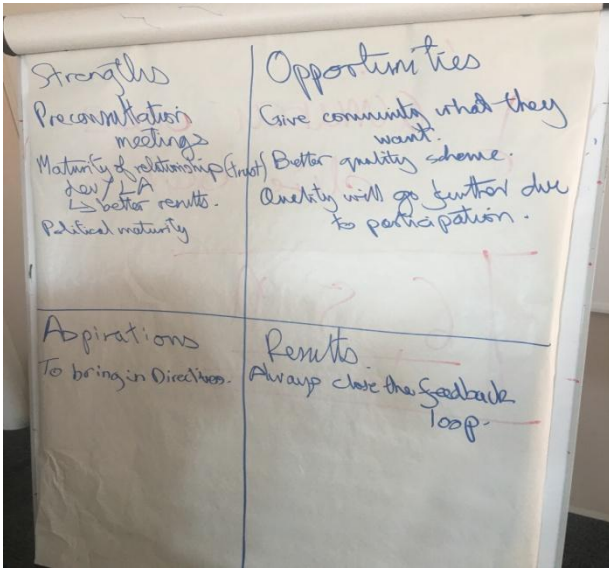 Strengths
Preconsultation
meetings
Maturity of relationship (trust)
Dev / LA
↳ better results.
Political maturity
Opportunities
Give community what they
want.
Better quality scheme.
Quality will go further due
to participation.
Aspirations
To bring in Directives.
Results
Always close the feedback
loop.